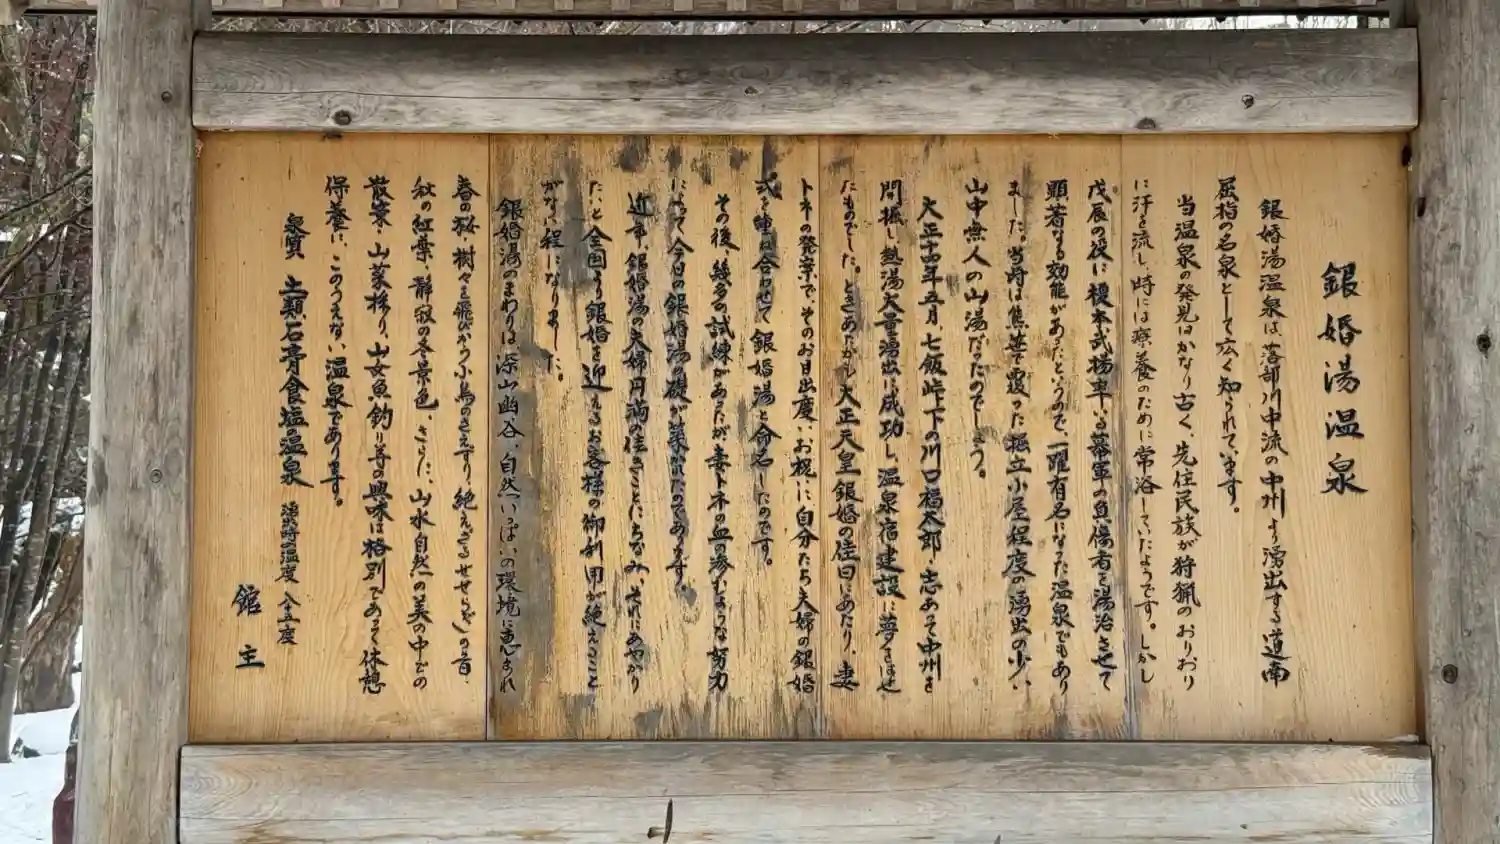 銀婚湯温泉
銀婚湯温泉は、落部川中流の中州より湧出する道南
屈指の名泉として広く知られています。
当温泉の発見はかなり古く、先住民族が狩猟のおりおり
に汗を流し、時には療養のために常浴していたようです。しかし
戊辰の役に榎本武揚率いる幕軍の負傷者を湯治させて
顕著なる効能があったというので、一躍有名になった温泉でもあり
ました。当時は熊笹で覆った掘立小屋程度の湧出の少い
山中無人の山湯だったのでしょう。
大正十四年五月、七飯峠下の川口福太郎、志あって中州を
問掘し熱湯大量湧出に成功し、温泉宿建設に夢をはせ
たものでした。ときあたかも大正天皇銀婚の佳日にあたり、妻
トネの発案で、そのお目出度いお祝いに自分たち夫婦の銀婚
式を重ね合わせて銀婚湯と命名したのです。
その後、幾多の試練があったが、妻トネの血の滲むような努力
によって今日の銀婚湯の礎が築かれたのであります。
近年、銀婚湯の夫婦円満の佳きことにちなみ、それにあやかり
たいと全国より銀婚を迎えるお客様の御利用が絶えること
がない程になりました。
銀婚湯のまわりは深山幽谷、自然いっぱいの環境に恵まれ
春の桜、樹々を飛びかう小鳥のさえずり、絶えざるせせらぎの音、
秋の紅葉、静寂の冬景色、さらに、山水自然への美の中での
散策、山菜採り、山女魚釣り等の興味は格別であって休憩
保養に、このうえない温泉であります。
泉質 土類石膏食塩の温泉 湧出時温度 八十五度
館主